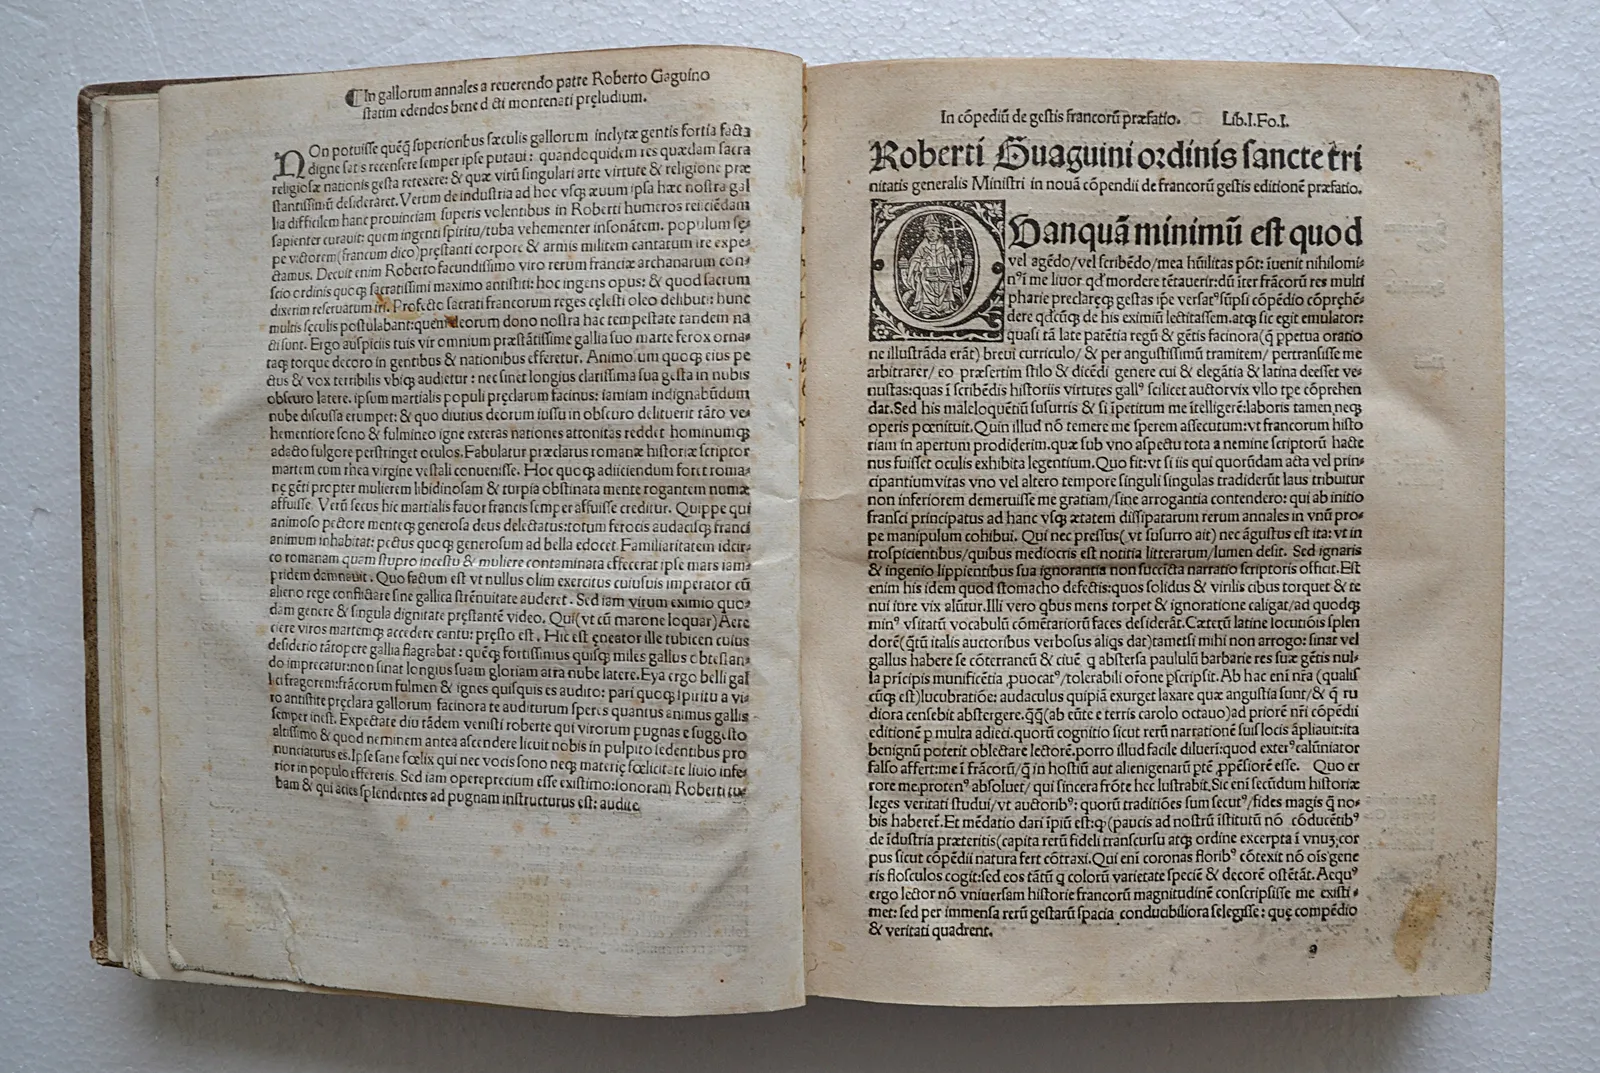 In gallorum annales a reuerendo patre Roberto Gaguino
statim edendos bened cti montenati pręludium.
NOn potuisse quēq̨ superioribus sæculis gallorum inclytæ gentis fortia facta
digne sat s recensere semper ipse putaui : quandoquidem res quædam sacra
religiosæ nationis gesta retexere: & quæ virū singulari arte virtute & religione præ
stantissimū desideraret. Verum de industria ad hoc vsq̨ æuum ipsa hæc nostra gal
lia difficilem hanc prouinciam superis volentibus in Roberti humeros reiiciēdam
sapienter curauit: quem ingenti spiritu/tuba vehementer insonātem. populum sę⸗
pe victorem(francum dico)pręstanti corpore & armis militem cantatum ire expe⸗
ctamus. Decuit enim Roberto facundissimo viro rerum franciæ archanarum con⸗
scio ordinis quoq̨ sacratissimi maximo antistiti: hoc ingens opus: & quod sacrum
dixerim reseruatum iri. Profecto sacrati francorum reges cęlesti oleo delibuti: hunc
multis sęculis postulabant:quem deorum dono nostra hac tempestate tandem na
cti sunt. Ergo auspiciis tuis vir omnium præstātissime gallia suo marte ferox orna⸗
taq̨ torque decoro in gentibus & nationibus efferetur. Animo um quoq̨ eius pe
ctus & vox terribilis vbiq̨ audietur : nec sinet longius clarissima sua gesta in nubis
obscuro latere. ipsum martialis populi pręclarum facinus: iamiam indignabūdum
nube discussa erumpet: & quo diutius deorum iussu in obscuro delituerit tāto ve⸗
hementiore sono & fulmineo igne exteras nationes attonitas reddet hominumq̨
adacto fulgore perstringet oculos.Fabulatur præclarus romanæ historiæ scriptor
martem cum rhea virgine vestali conuenisse. Hoc quoq̨ adiiciendum foret roma⸗
nę gēti propter mulierem libidinosam & turpia obstinata mente rogantem numæ
affuisse. Verū secus hic martialis fauor francis semper affuisse creditur. Quippe qui
animoso pectore menteq̨ generosa deus delectatus:totum ferocis audacisq̨ franci
animum inhabitat: pectus quoq̨ generosum ad bella edocet Familiaritatem idcir⸗
co romanam quam stupro incestu & muliere contaminata effecerat ipse mars iam⸗
pridem damnauit . Quo factum est vt nullus olim exercitus cuiusuis imperator cū
alieno rege conflictare sine gallica strēnuitate auderet . Sed iam virum eximio quo⸗
dam genere & singula dignitate prestantē video. Qui(vt cū marone loquar)Aere
ciere viros martemq̨ accedere cantu: pręsto est . Hic est ęneator ille tubicen cuius
desiderio tātopere gallia flagrabat : quēq̨ fortissimus quisq̨ miles gallus
do imprecatur:non sinat longius suam gloriam atra nube latere.Eya ergo belli gal
l ci fragorem:frācorum fulmen & ignes quisquis es audito: pari quoq̨ spiritu a vi⸗
ro antistite pręclara gallorum facinora te auditurum speres quantus animus gallis
semper inest. Expectate diu tādem venisti roberte qui virorum pugnas e suggesto
altissimo & quod neminem antea ascendere licuit nobis in pulpito sedentibus pro
nunciaturus es.Ipse sane fœlix qui nec vocis sono neq̨ materię fœlicitate liuio infe⸗
rior in populo effereris. Sed iam operepreciuim esse existimo:sonoram Roberti tu⸗
bam & qui acies splendentes ad pugnam instructurus est: audite
In cōpediū de gestis francorū præfatio. Lib.I.Fo.I.
Roberti Guaguini ordinis sancte tri
nitatis generalis Ministri in nouā cōpendii de francorū gestis editionē præfatio.
QVanquā minimū est quod
vel agēdo/vel scribēdo/mea hūilitas pōt: iuenit nihilomi⸗
nꝰ ī me liuor qđ mordere tētauerit:dū iter frācorū res multi
pharie preclareq̨ gestas ipe versatꝰsūpsi cōpēdio cōpręhē⸗
dere qđcūq̨ de his eximiū lectitassem.atq̨ sic egit emulator:
quasi tā late patētia regū & gētis facinora(q̄ ppetua oratio
ne illustrāda erāt) breui curriculo/ & per angustissimū tramitem/ pertransisse me
arbitrarer/ eo præsertim stilo & dicēdi genere cui & elegātia & latina deesset ve⸗
nustas:quas ī scribēdis historiis virtutes gallꝰ scilicet auctorvix vllo tpe cōprehen
dat.Sed his maleloquētiū susurris & si īpetitum me ītelligerē:laboris tamen neq̨
operis pœnituit.Quin illud nō temere me sperem assecutum:vt francorum histo
riam in apertum prodiderim.quæ sub vno aspectu tota a nemine scriptorū hacte
nus fuisset oculis exhibita legentium. Quo fit:vt si iis qui quorūdam acta vel prin⸗
cipantium vitas vno vel altero tempore singuli singulas tradiderūt laus tribuitur
non inferiorem demeruisse me gratiam/sine arrogantia contendero: qui ab initio
fransci principatus ad hanc vsq̨ ætatem dissipatarum rerum annales in vnū pro⸗
pe manipulum cohibui. Qui nec pressus( vt susurro ait) nec āgustus est ita: vt in
trospicientibus/quibus mediocris est notitia litterarum/lumen desit. Sed ignaris
& ingenio lippientibus sua ignorantia non succicta narratio scriptoris officit.Est
enim his idem quod stomacho defectis:quos solidus & virilis cibus torquet & te
nui iure vix alūtur.Illi vero q̄bus mens torpet & ignoratione caligat/ad quodq̨
minꝰ vsitatū vocabulū cōmētariorū faces desiderāt.Cæterū latine locutiōis splen
dorē(q̄tū italis auctoribus verbosus aliqs dat)tametsi mihi non arrogo: sinat vel
gallus habere se cōterraneū & ciuē q abstersa paululū barbarie res suæ gētis nul⸗
la pricipis munificētia ,puocatꝰ/tolerabili orōne pscripsit. Ab hac enī nra (qualis
cūq̨ est)lucubratiōe: audaculus quipiā exurget laxare quæ angustia sunt/& q̄ ru
diora censebit abstergere.q̄q̄(ab eūte e terris carolo octauo)ad priorē nri cōpēdii
editionē p multa adieci.quorū cognitio sicut rerū narrationē suis locis āpliauit:ita
benignū poterit oblectare lectorē.porro illud facile diluerī:quod exterꝰcalūniator
falso affert:me ī frācorū/q̄ in hostiū aut alienigenarū ptē ,ppēsiorē esse. Quo er
rore me:protenꝰ absoluet/ qui sincera frōte hec lustrabit.Sic enī secūdum historiæ
leges veritati studui/vt auctoribꝰ: quorū traditiōes sum secutꝰ/fides magis q̄ no⸗
bis haberet̄.Et mēdatio dari īpiū est:q̨(paucis ad nostrū īstitutū nō cōducētibꝰ
de īdustria præteritis(capita rerū fideli transcursu atq̨ ordine excerpta ī vnuꝫ cor
pus sicut cōpēdii natura fert cōtraxi.Qui enī coronas floribꝰ cōtexit nō oīs gene
ris flosculos cogit:sed eos tātū q colorū varietate speciē & decorē ostētāt. Aequꝰ
ergo lector nō vniuersam historie francorū magnitudinē conscripsisse me existi⸗
met: sed per immensa rerū gestarū spacia conducibiliora selegisse : quę compēdio
& veritati quadrent.
a